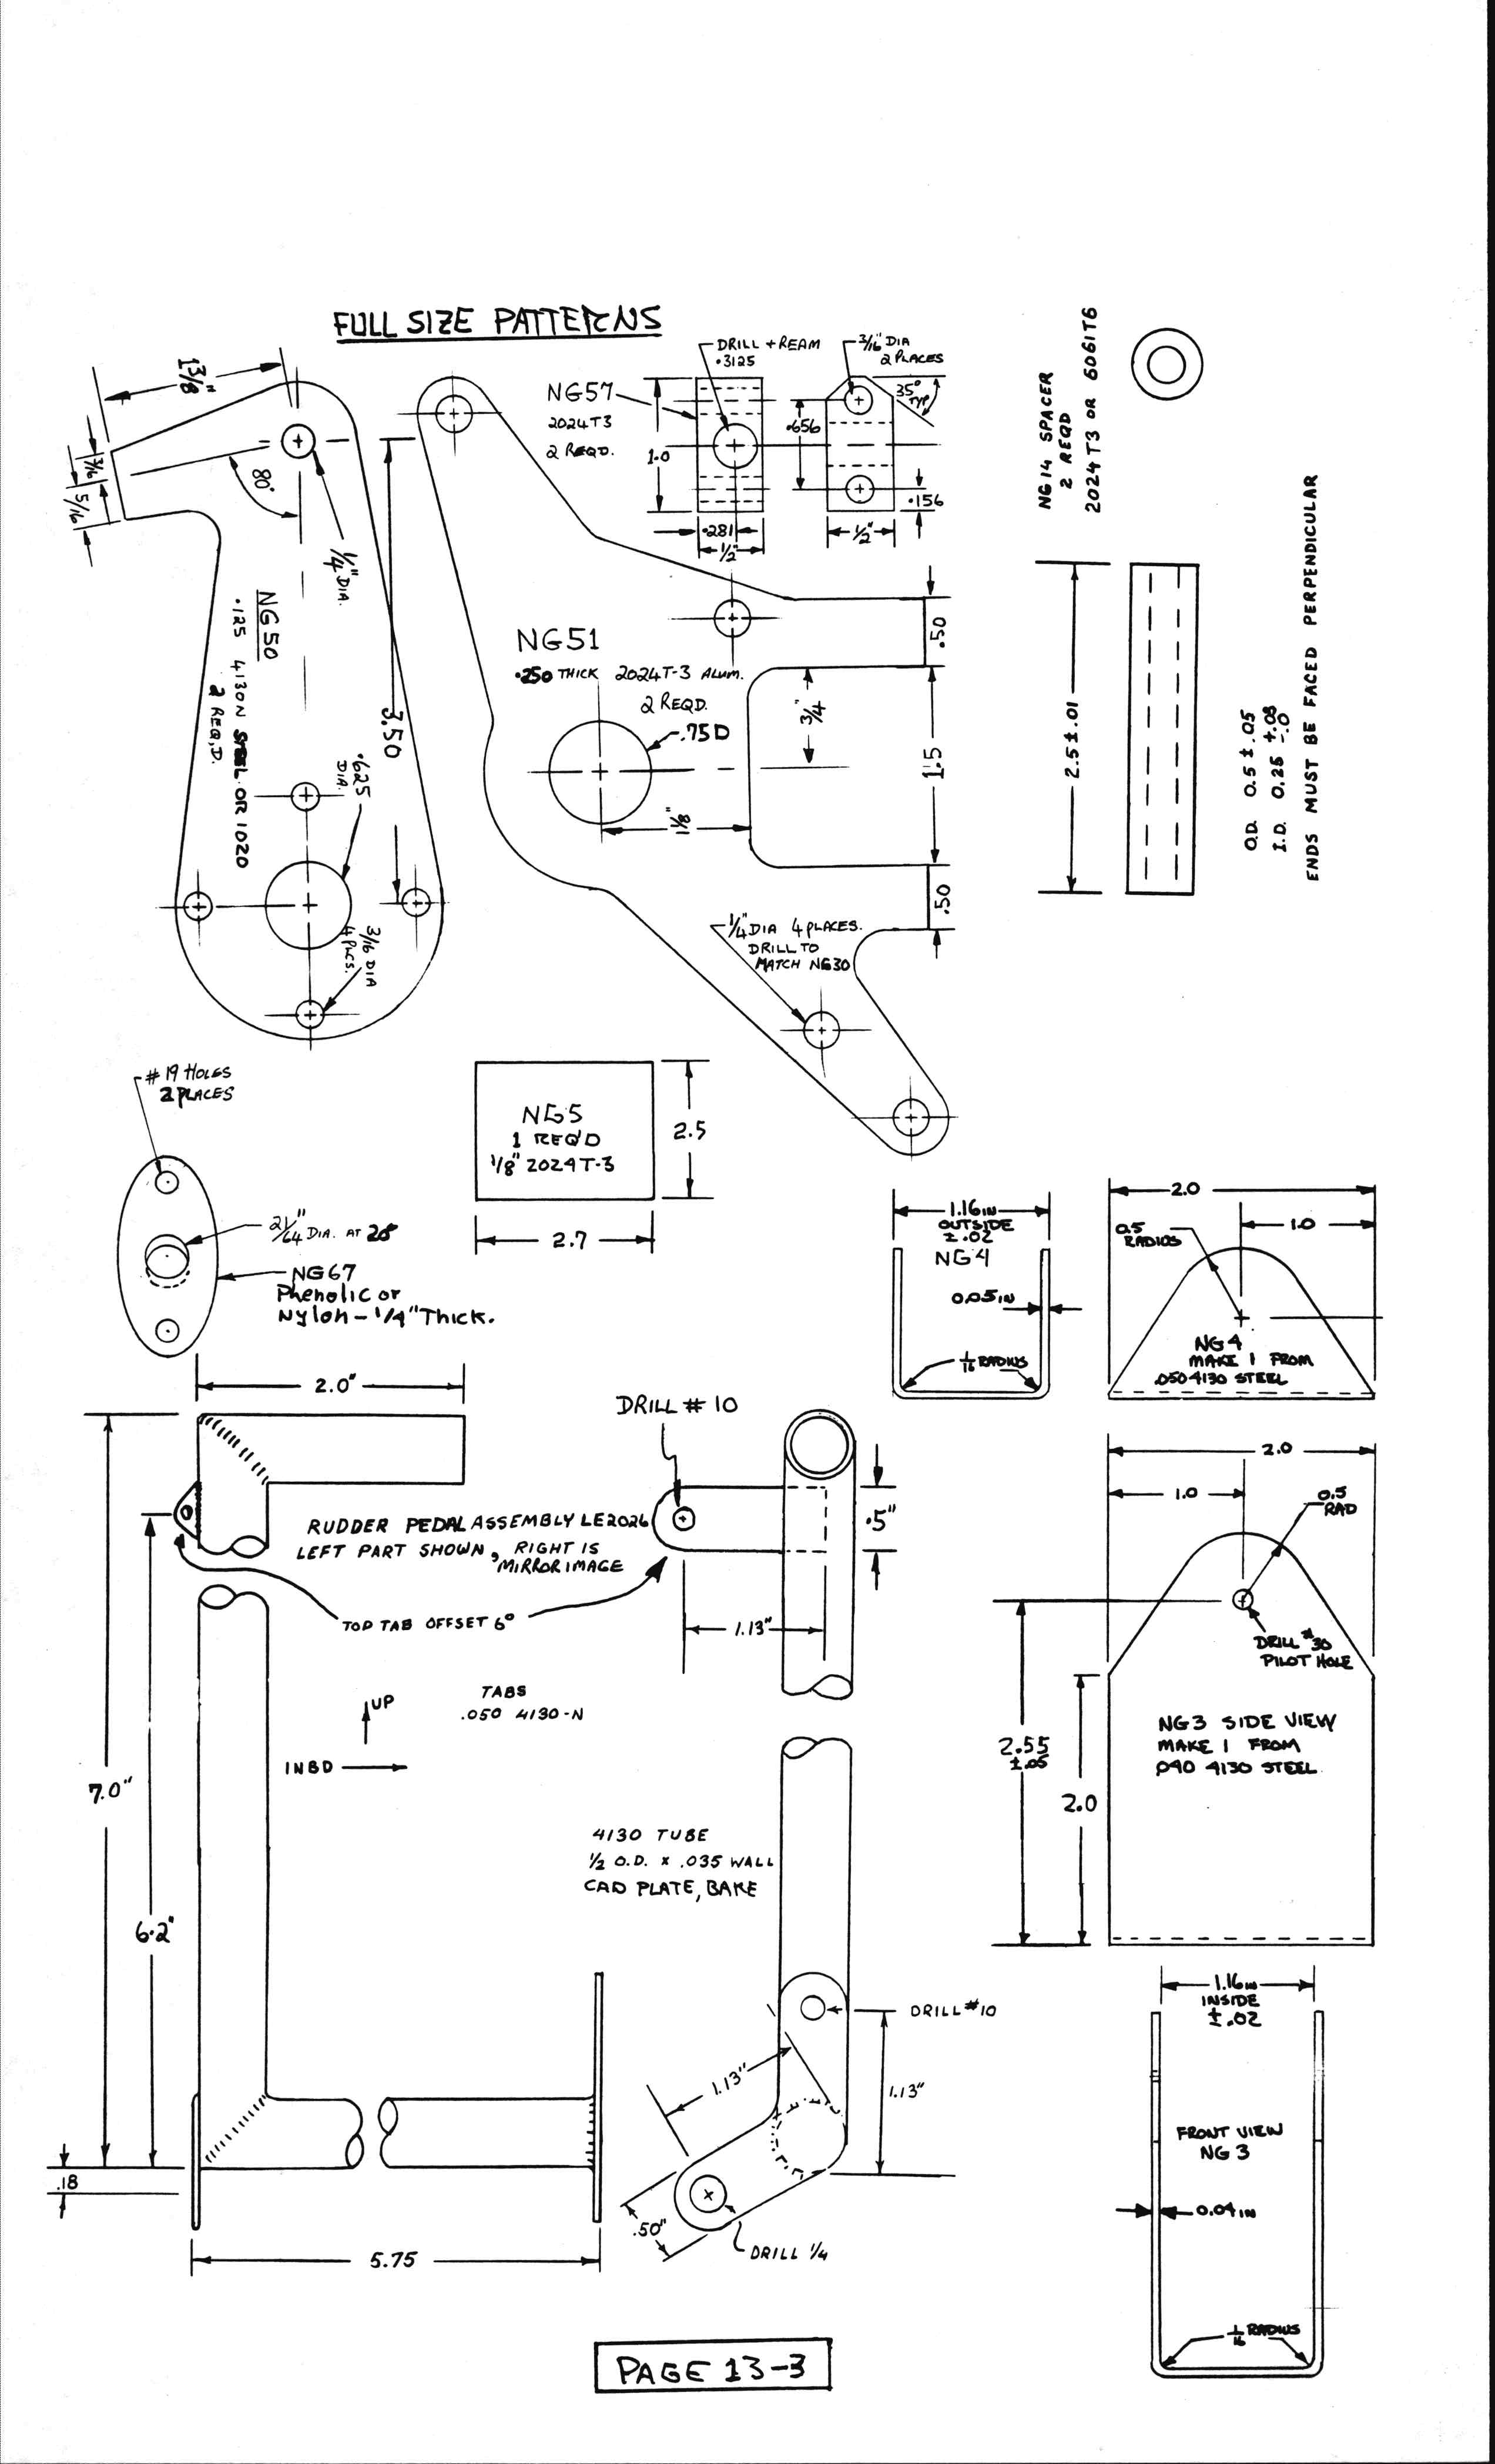 FULL SIZE PATTERNS
1 3/8"
3/16
5/16
80°
1/4" DIA.
NG50
.125 4130N STEEL OR 1020
2 REQ,D.
3.50
.625
DIA.
3/16 DIA
4 PLCS.
NG57
2024T3
2 REQD.
DRILL + REAM
.3125
1.0
.281
1/2"
3/16" DIA
2 PLACES
35°
TYP
.656
.156
1/2"
NG51
.250 THICK 2024T-3 ALUM.
2 REQD.
.75D
3/4"
1 1/8"
.50
1.5
.50
1/4" DIA 4 PLACES.
DRILL TO
MATCH NG30
NG14 SPACER
2 REQD
2024T3 OR 6061T6
2.5±.01
O.D. 0.5±.05
I.D. 0.25 +.03 -.0
ENDS MUST BE FACED PERPENDICULAR
# 19 HOLES
2 PLACES
21/64" DIA. AT
NG67
Phenolic or
Nylon-1/4" Thick.
NG5
1 REQ'D
1/8" 2024T-3
2.5
2.7
1.16IN
OUTSIDE
±.02
NG4
0.05IN
1/16 RADIUS
2.0
1.0
0.5
RADIUS
NG4
MAKE 1 FROM
.050 4130 STEEL
2.0"
7.0"
6.2"
.18
5.75
DRILL # 10
.5"
1.13"
RUDDER PEDAL ASSEMBLY LE2026
LEFT PART SHOWN, RIGHT IS
MIRROR IMAGE
TOP TAB OFFSET 6°
UP
INBD
TABS
.050 4130-N
4130 TUBE
1/2 O.D. x .035 WALL
CAD PLATE, BAKE
DRILL #10
1.13"
1.13"
.50"
DRILL 1/4
2.0
1.0
0.5
RAD
DRILL #30
PILOT HOLE
2.55
±.05
2.0
NG3 SIDE VIEW
MAKE 1 FROM
.040 4130 STEEL
1.16IN
INSIDE
±.02
FRONT VIEW
NG 3
0.04IN
1/16 RADIUS
PAGE 13-3